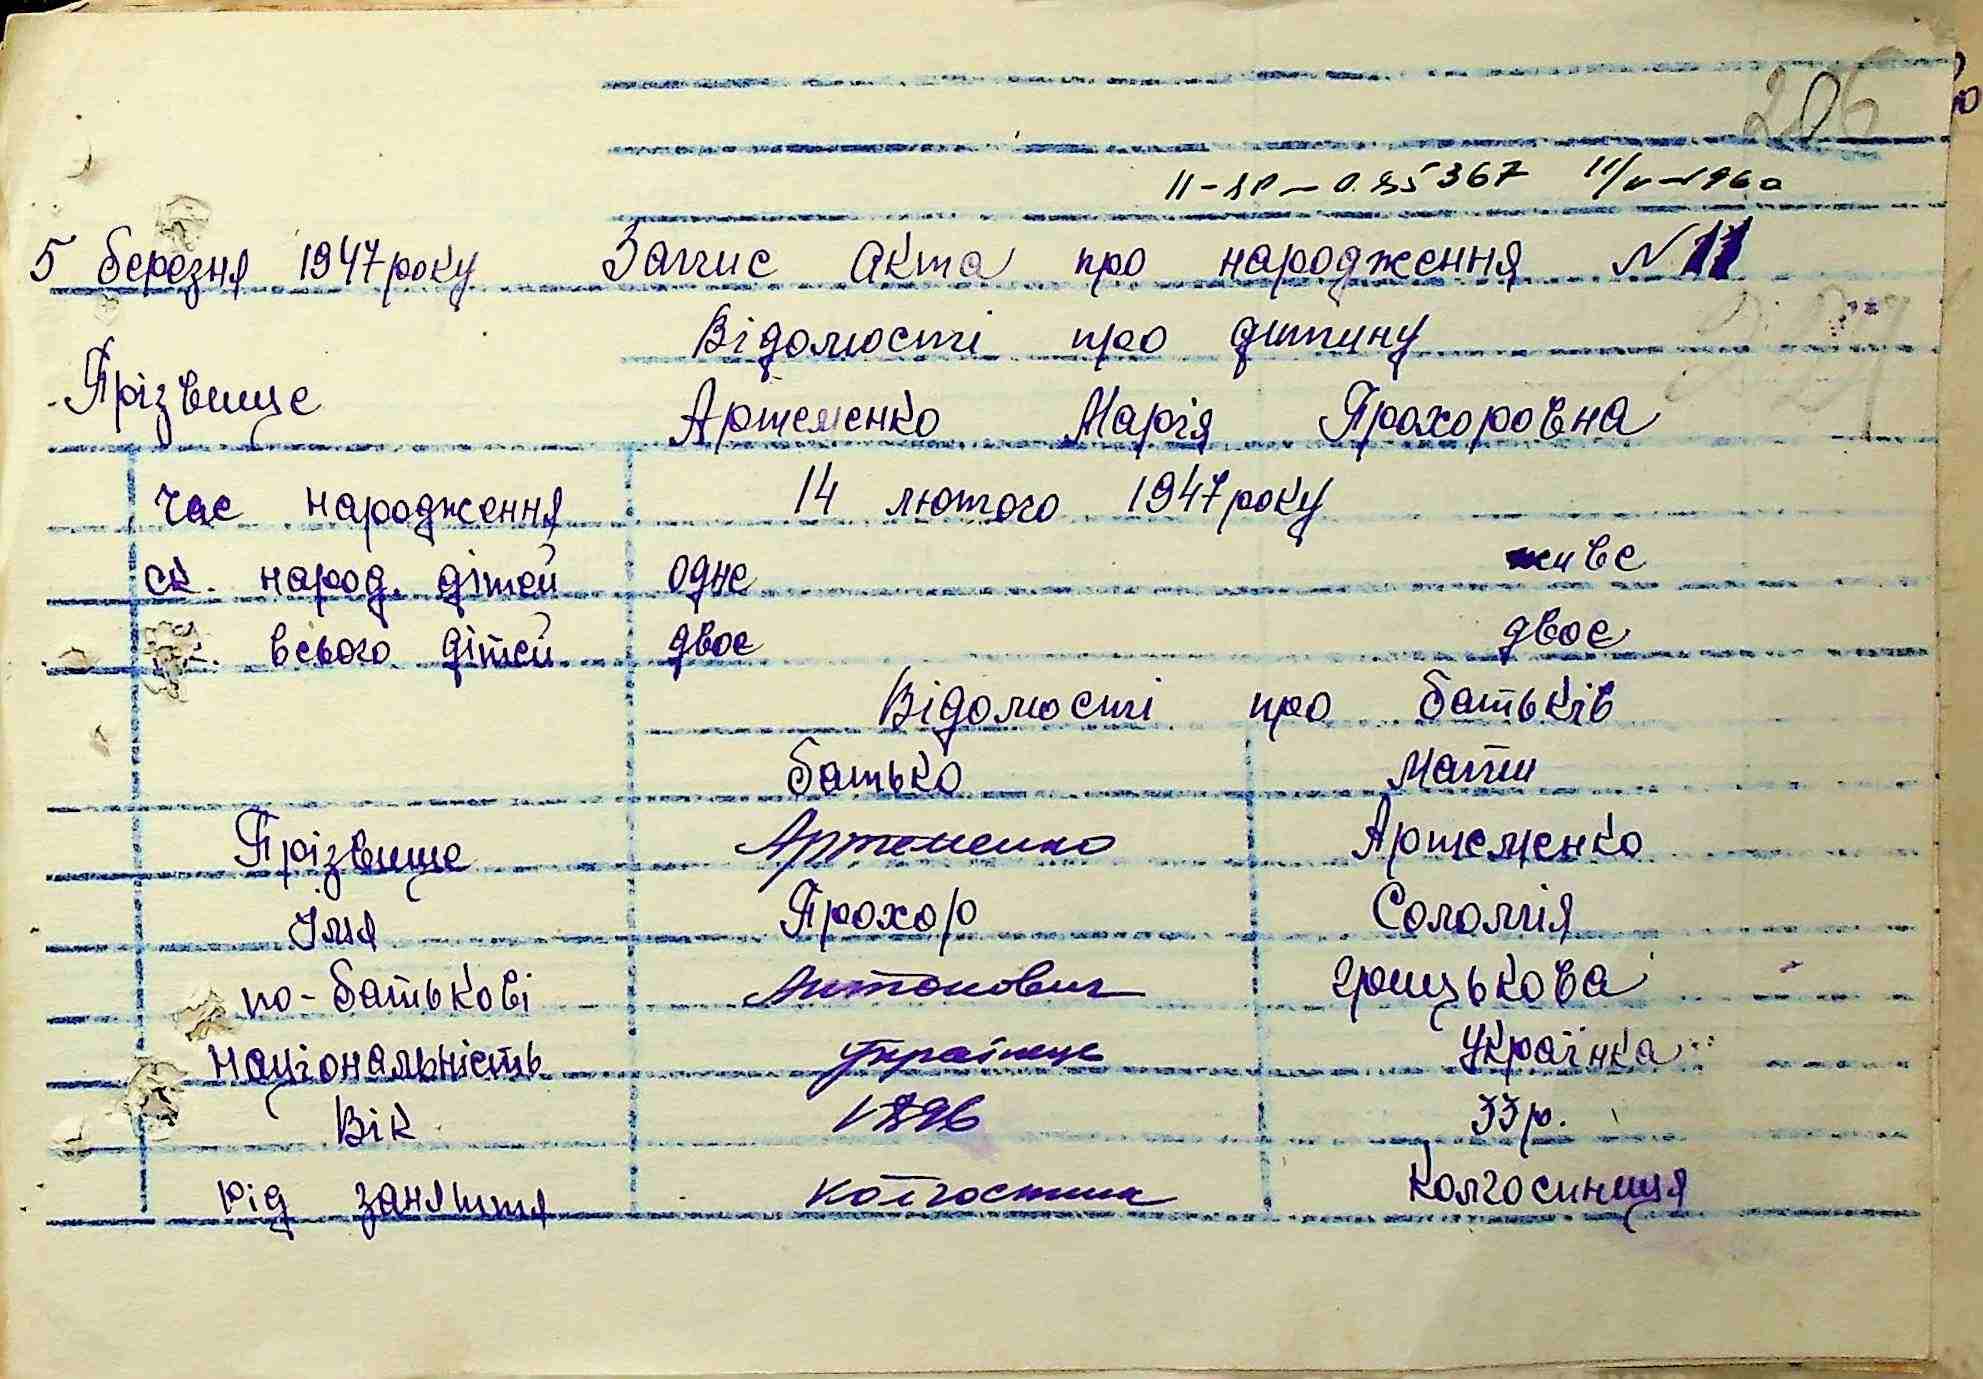 206
II-ЯР-0.85367 11/V-1960
5 березня 1947 року Запис акта про народження N 11
Відомості про дитину
Прізвище Артеменко Марія Прохоровна
час народження 14 лютого 1947 року
ск. народ. дітей одне живе
всього дітей двоє двоє
Відомості про батьків
батько мати
Прізвище Артеменко Артеменко
Імя Прохор Соломія
по-батькові Антонович Грицькова
національність українець Українка
Вік 1896 33 р.
рід заняття колгоспник Колгоспниця